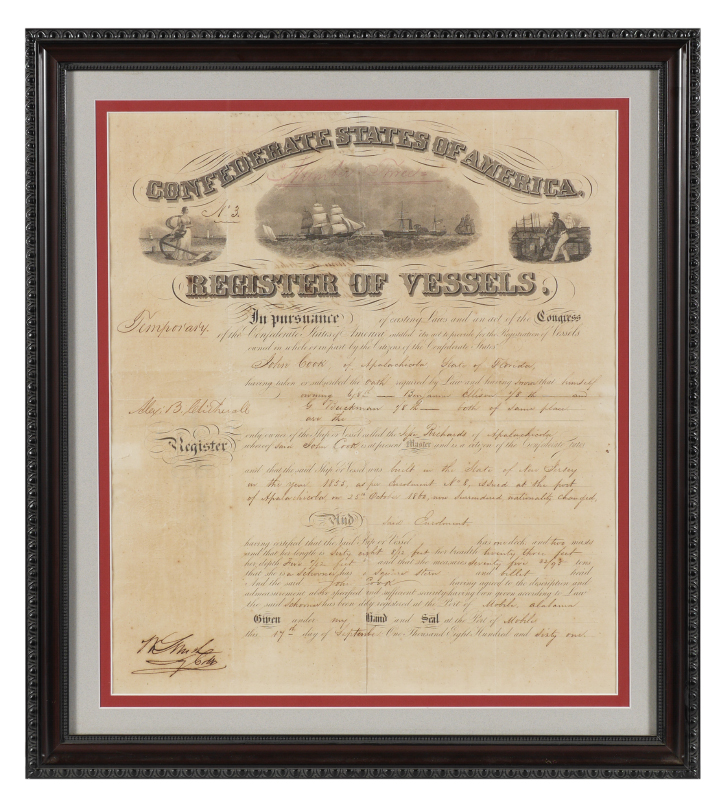 CONFEDERATE STATES OF AMERICA.
No 3.
REGISTER OF VESSELS.
Temporary.
In pursuance of existing Laws and an act of the Congress
of the Confederate States of America entitled "An act to provide for the Registration of Vessels
owned in whole or in part by the Citizens of the Confederate States"
John Cook of Apalachicola State of Florida,
having taken or subscribed the Oath required by Law and having sworn that himself
owning 6/8th — Benjamin Ellison 1/8th — and
Alex. B. Clitherall
G 1/8th — both of same place
are the
Register
only owners of the Ship or Vessel called the of Apalachicola
whereof said John Cook is at present Master and is a citizen of the Confederate States
and that the said Ship or Vessel was built in the State of New Jersey
in the year as per Enrolment No 8, issued at the port
of Apalachicola, on 25th October 1860, now Surrendered nationality changed,
And Said Enrolment
having certified that the Said Ship or Vessel has one deck and two masts
and that her length is Sixty eight 8/12 feet her breadth twenty three feet
her depth five feet and that she measures Seventy five tons
that she is a Schooner has a Square Stern and billet head
And the said John Cook having agreed to the description and
admeasurement above specified and sufficient security having been given according to Law
the said Schooner has been duly registered at the Port of Mobile, Alabama
Given under my Hand and Seal at the Port of Mobile
this 17th day of September One Thousand Eight Hundred and sixty one.